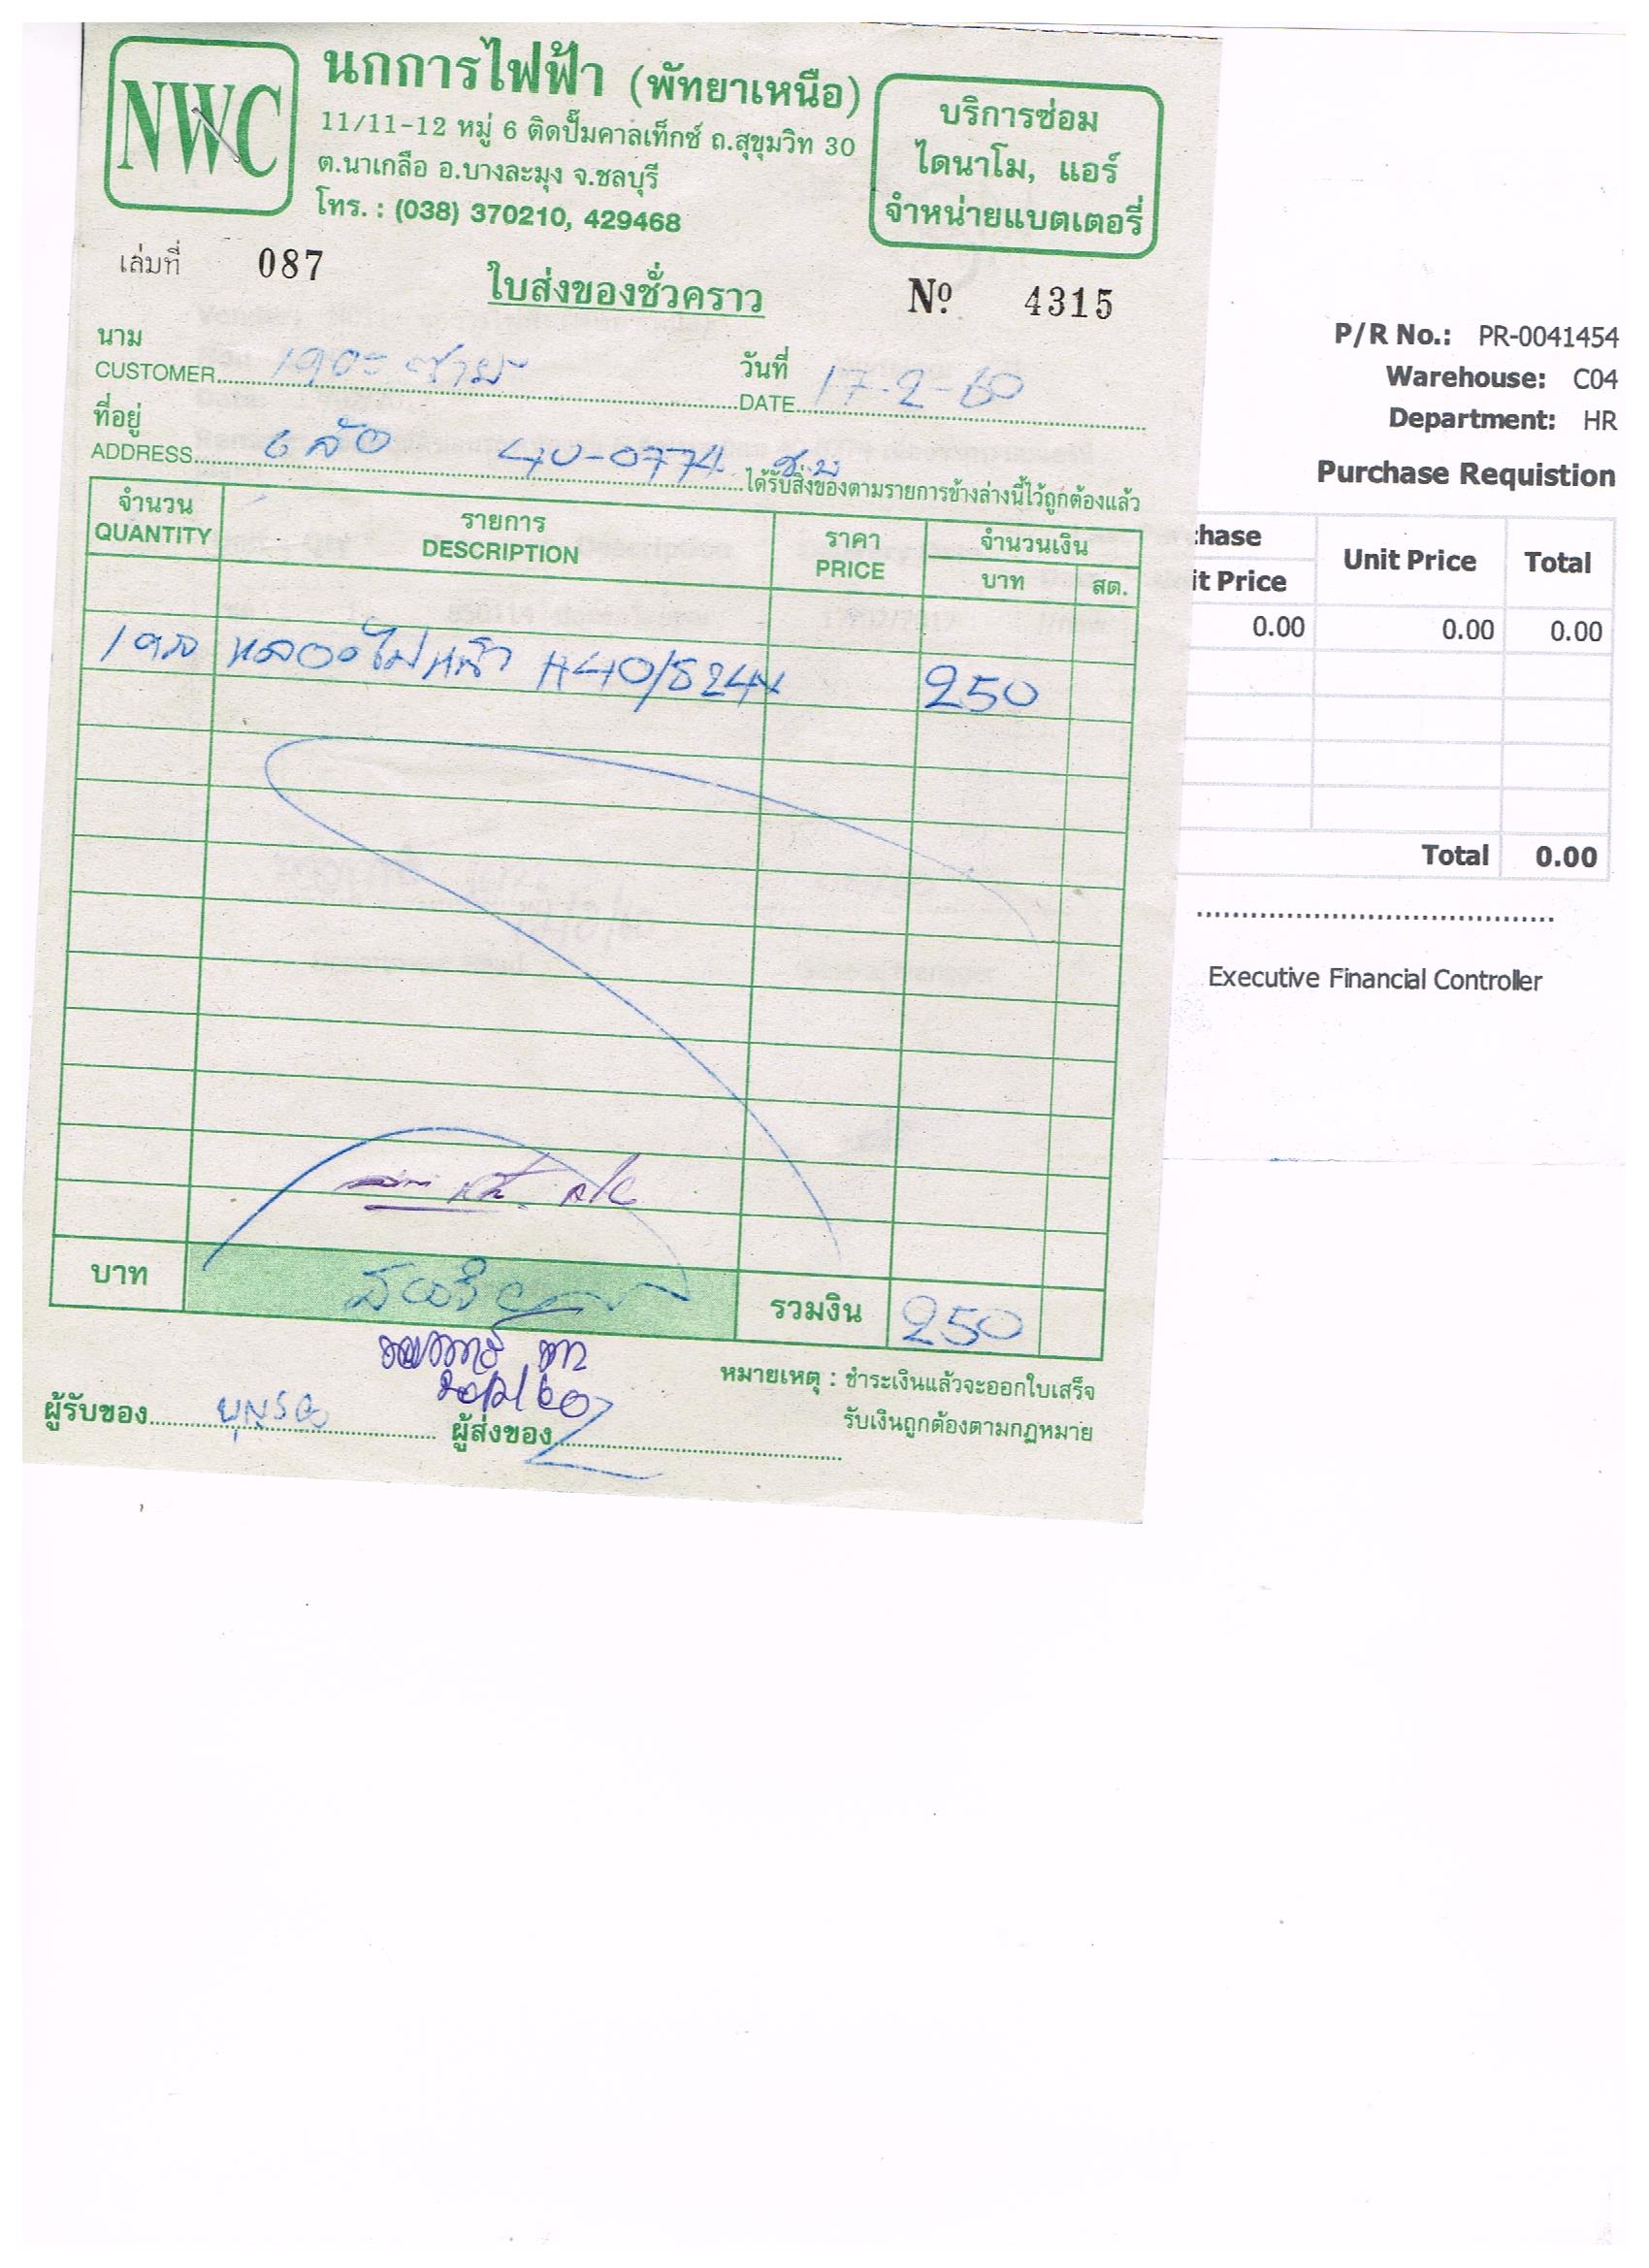 NWC
นกการไฟฟ้า (พัทยาเหนือ)
11/11-12 หมู่ 6 ติดปั๊มคาลเท็กซ์ ถ.สุขุมวิท 30
ต.นาเกลือ อ.บางละมุง จ.ชลบุรี
โทร. : (038) 370210, 429468
บริการซ่อม
ไดนาโม, แอร์
จำหน่ายแบตเตอรี่
เล่มที่ 087
ใบส่งของชั่วคราว
Nº 4315
นาม
CUSTOMER
วันที่
DATE 17-2-60
ที่อยู่
ADDRESS 6 ล้อ 40-0774 ช.บ
ได้รับสิ่งของตามรายการข้างล่างนี้ไว้ถูกต้องแล้ว
จำนวน รายการ ราคา จำนวนเงิน
QUANTITY DESCRIPTION PRICE บาท สต.
1 หลอดไฟหน้า 250
บาท รวมงิน 250
หมายเหตุ : ชำระเงินแล้วจะออกใบเสร็จ
รับเงินถูกต้องตามกฎหมาย
ผู้รับของ ผู้ส่งของ
P/R No.: PR-0041454
Warehouse: C04
Department: HR
Purchase Requistion
chase Unit Price Total
it Price
0.00 0.00 0.00
Total 0.00
Executive Financial Controller